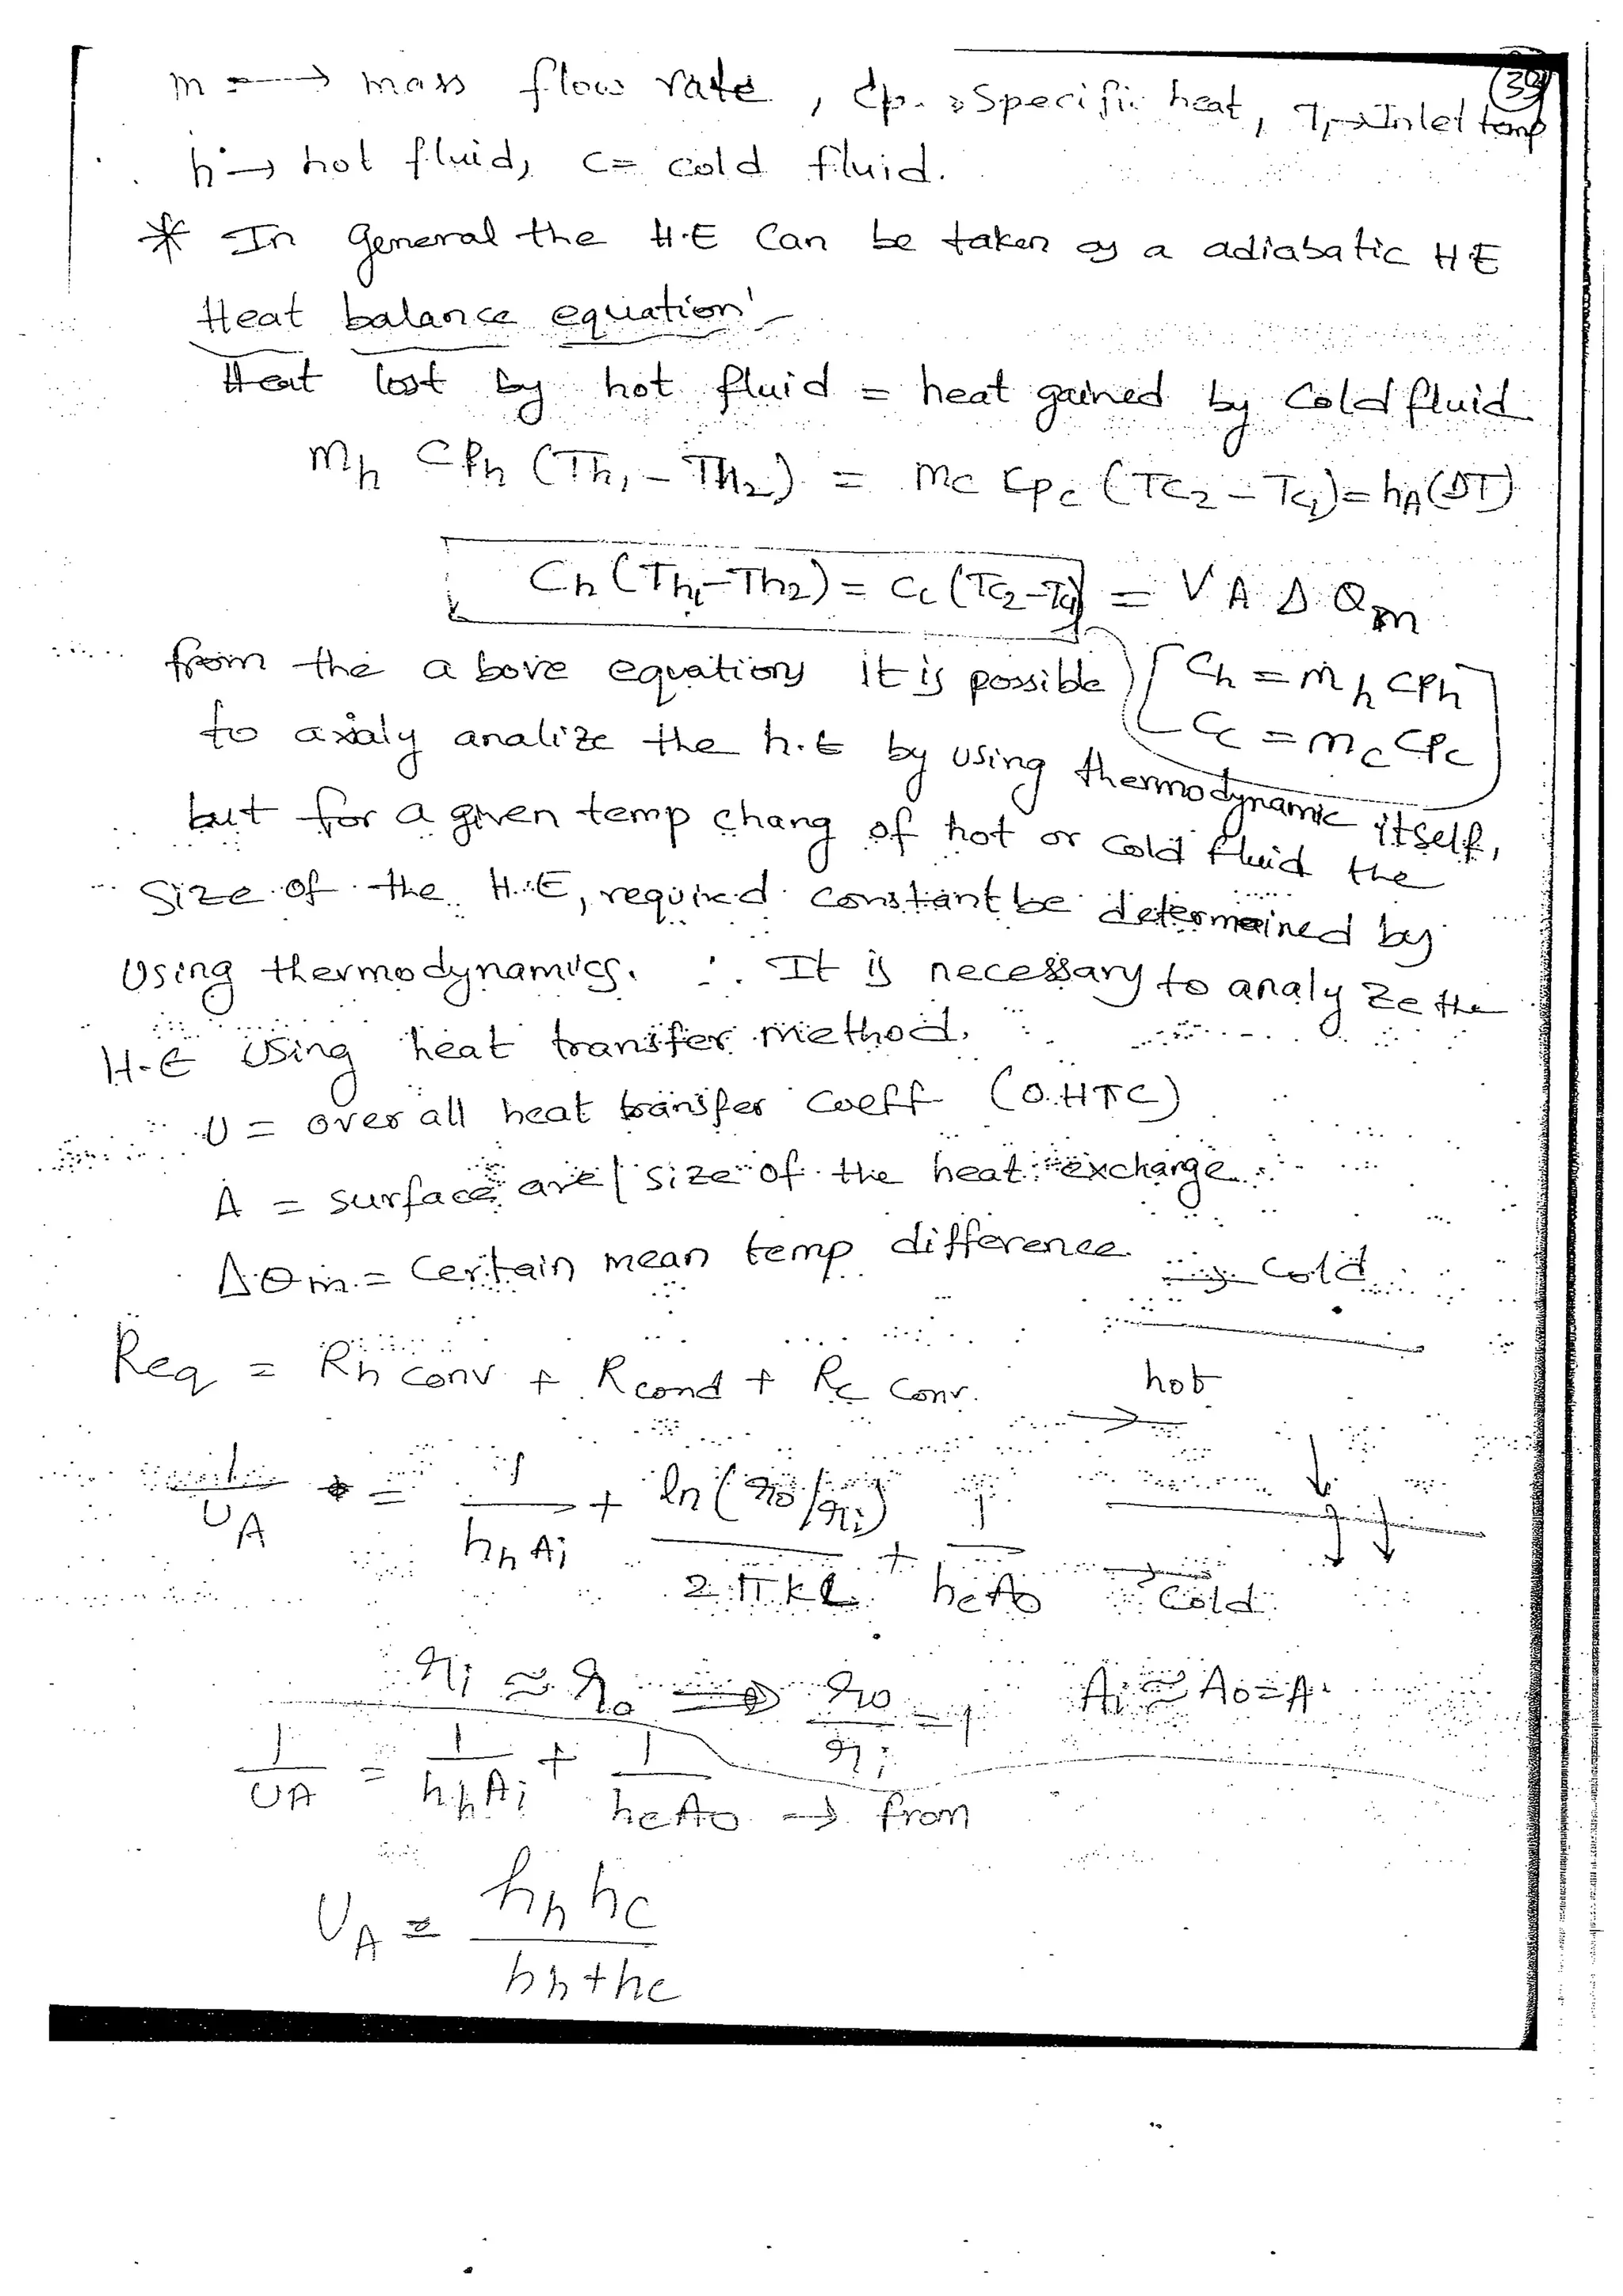 39
m → mass flow rate, Cp → Specific heat, T1 → Inlet temp
h → hot fluid, c = cold fluid.
* In general the H.E Can be taken as a adiabatic HE
Heat balance equation
Heat lost by hot fluid = heat gained by Cold fluid
mh CPh (Th1 - TH2) = mc Cpc (TC2 - TC1) = hA(ΔT)
Ch (Th1 - Th2) = Cc (TC2 - TC1) = U A Δ Θm
from the above equations it is possible [Ch = ṁh CPh
to analize the h.E by using thermodynamic itself, Cc = mc CPc]
but for a given temp chang of hot or cold fluid the
size of the H.E, required constant be determained by
Using thermodynamics. ∴ It is necessary to analyze the
H.E Using heat transfer method.
U = over all heat transfer coeff (O.HTC)
A = surface are / size of the heat exchange
ΔΘm = Certain mean temp difference
→ Cold
Req = Rh conv + Rcond + Rc conv.
hot
→
1/UA = 1/hhAi + ln(ro/ri)/2πkL + 1/hcAo
→ Cold
ri ≈ ro ⇒ ro/ri = 1 Ai ≅ Ao = A
1/UA = 1/hhAi + 1/hcAo → from
UA = hh hc/hh + hc